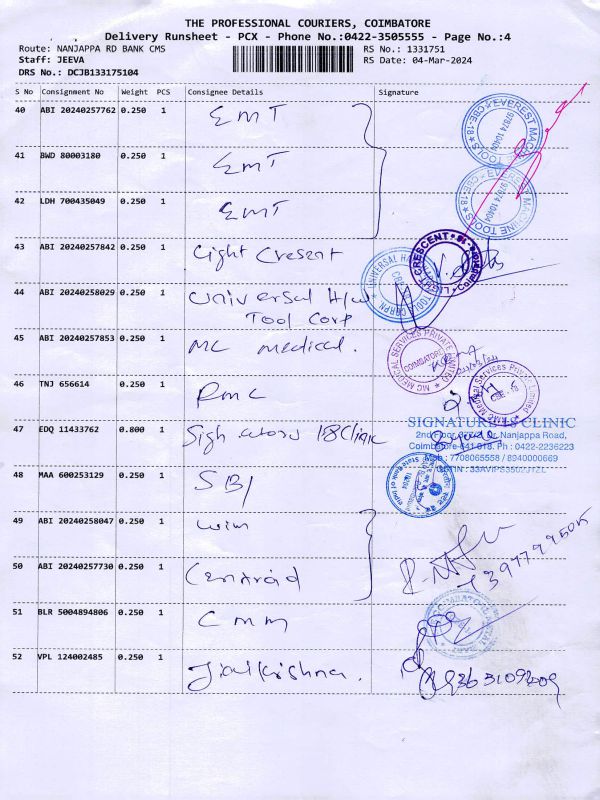 THE PROFESSIONAL COURIERS, COIMBATORE
Delivery Runsheet - PCX - Phone No.:0422-3505555 - Page No.:4
Route: NANJAPPA RD BANK CMS
RS No.: 1331751
Staff: JEEVA
RS Date: 04-Mar-2024
DRS No.: DCJB133175104
S No Consignment No Weight PCS Consignee Details Signature
40 ABI 20240257762 0.250 1 EMT
EVEREST MACHINE TOOLS CBE-18 97874 10404
41 BWD 80003180 0.250 1 EMT
42 LDH 700435049 0.250 1 EMT
EVEREST MACHINE TOOLS CBE-18 97874 10404
43 ABI 20240257842 0.250 1 Light Crescent
LIGHT CRESCENT
44 ABI 20240258029 0.250 1 Universal H/W
Tool Corp
45 ABI 20240257853 0.250 1 MC medical.
MC MEDICAL SERVICES PRIVATE LIMITED COIMBATORE
46 TNJ 656614 0.250 1 RMC
RMC Medical Services Private Limited CBE-18
47 EDQ 11433762 0.800 1 Signatures 18 Clinic
SIGNATURE 18 CLINIC
2nd Floor, Dr. Nanjappa Road,
Coimbatore-641 018. Ph : 0422-2236223
Mob : 7708065558 / 8940000669
48 MAA 600253129 0.250 1 SBI
State Bank of India
49 ABI 20240258047 0.250 1 Wim
50 ABI 20240257730 0.250 1 Centroid
51 BLR 5004894806 0.250 1 CMM
52 VPL 124002485 0.250 1 Jaikrishna.